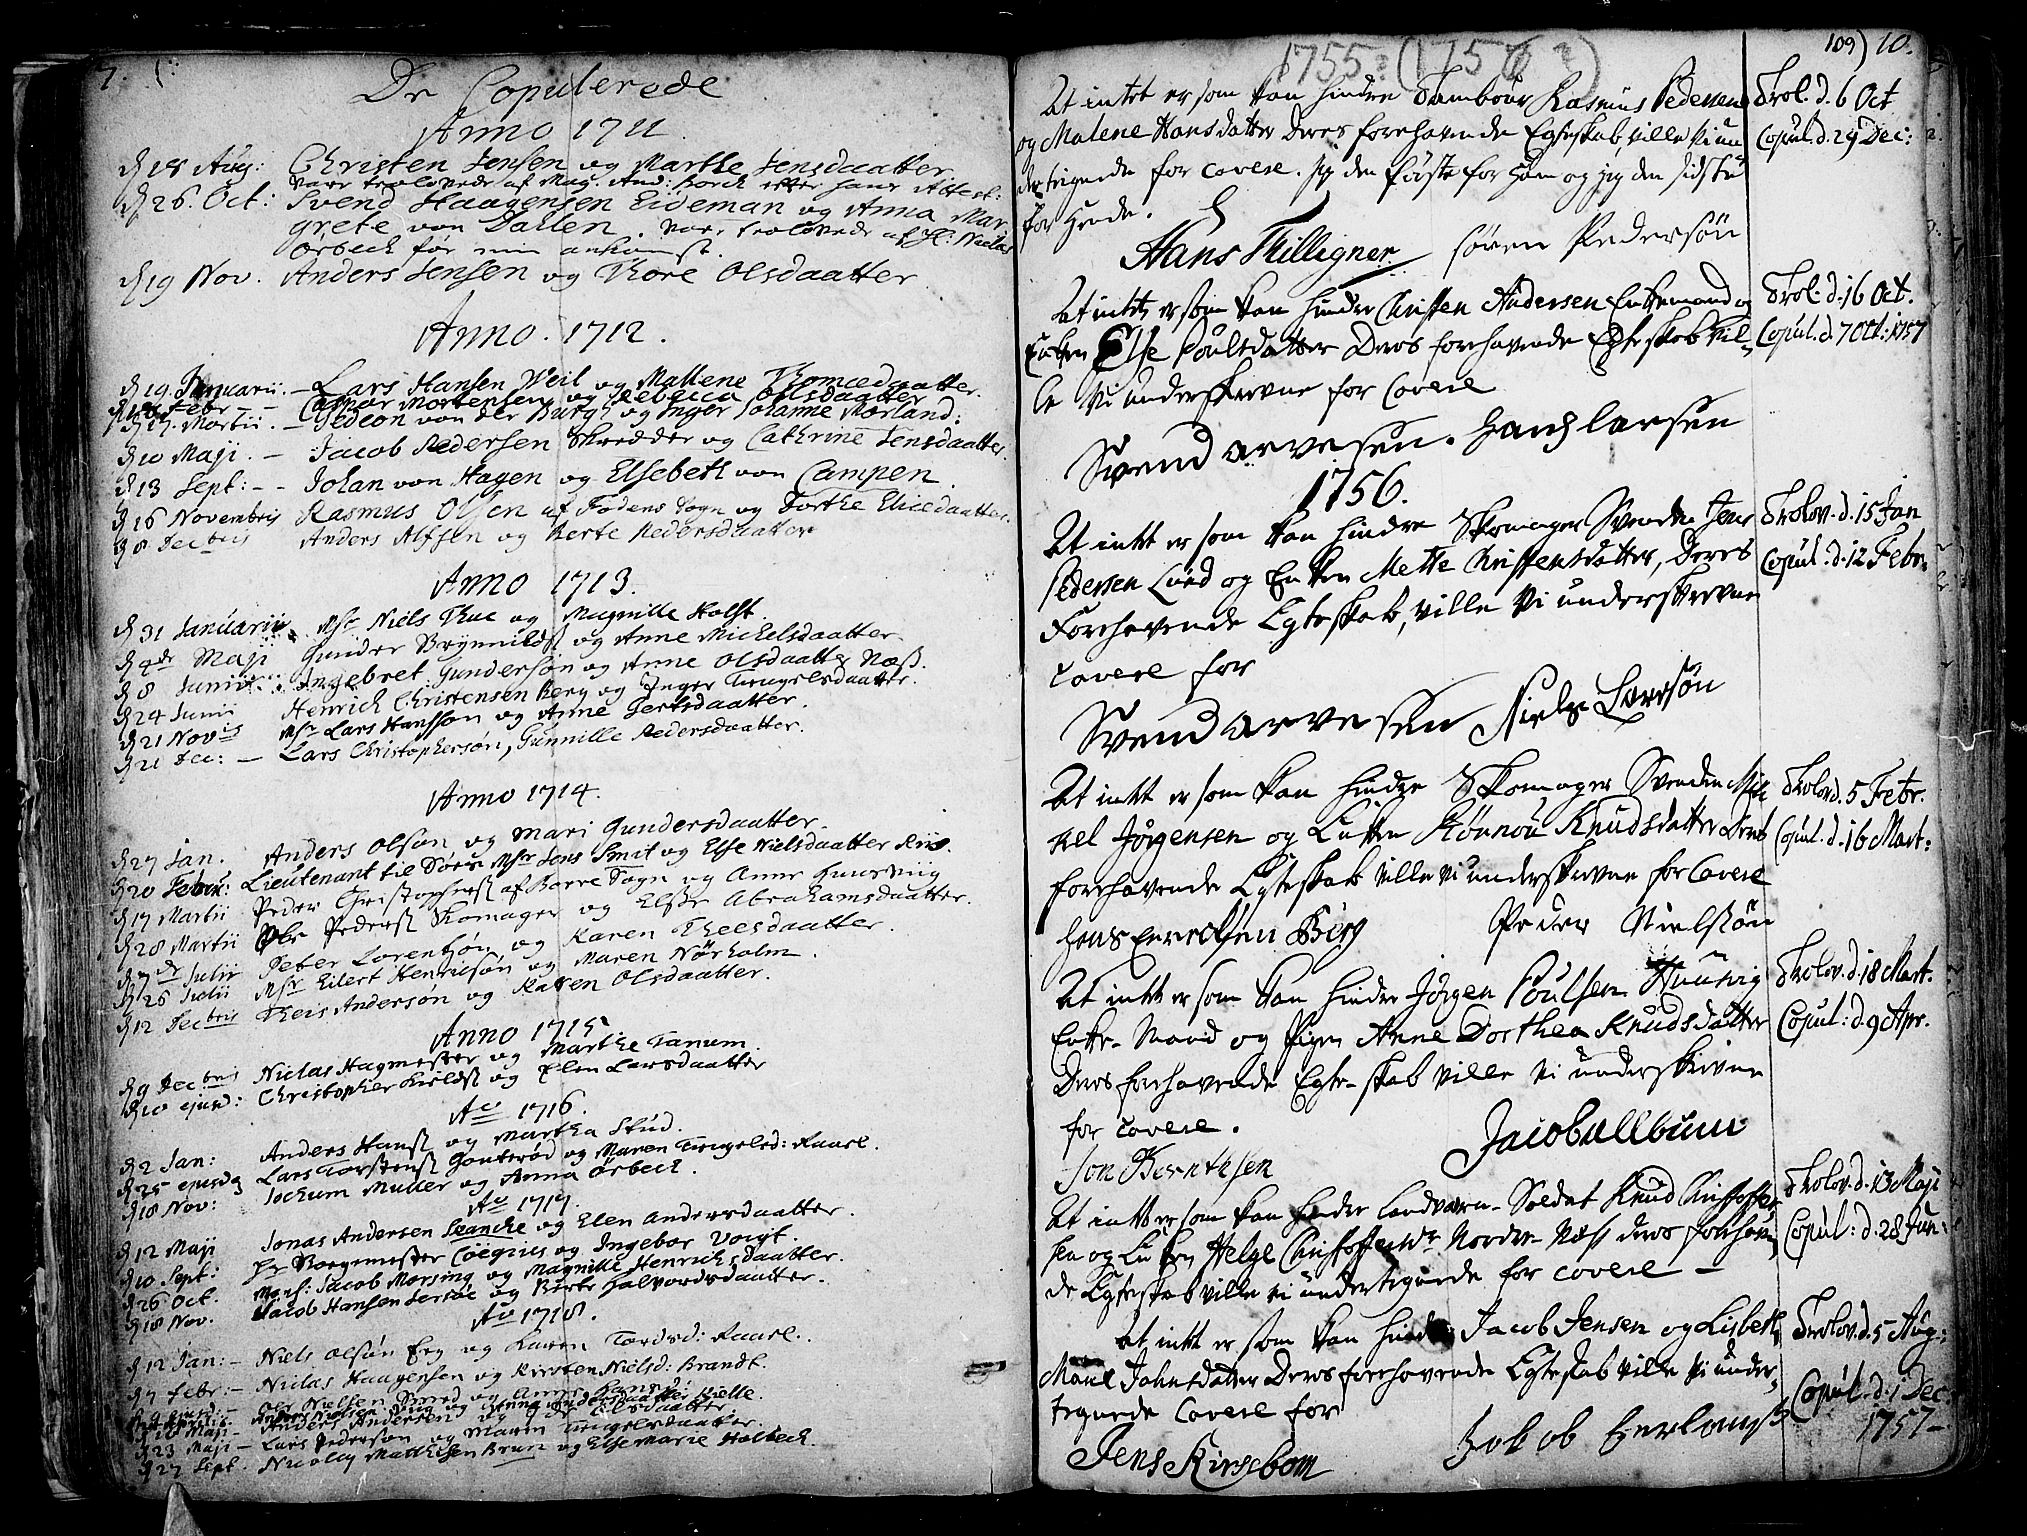 De Copulerede
Anno 1711.
d 18 Aug: Christen Jensen og Marthe Jensdaatter.
vare trolovede af Mag. And: Borch efter hans Attest:
d 26. Oct: Svend Haagensen Eideman og Anna Mar
grete von Dahlen. vare trolovede af H: Niclas
Orbech før min ankomst.
d 19 Nov. Anders Jensen og Thore Olsdaatter
Anno. 1712.
d 19 Januarii. – Lars Hansen Weil og Mallene Thomædaatter.
Febr – Casper Mortensen og Rebecca Olsdaatter
d 17. Martii. – Gedeon von der Burgh og Inger Johanne Morland:
d 10 Maji. – Jacob Pedersen Skredder og Cathrine Jensdaatter.
d 13 Sept: – Johan von Hagen og Elsebeth von Campen.
d 16 Novembris Rasmus Olsen af Fodens Sogn og Dorthe Elicedaatter.
d 8 Decbris Anders Alfsen og Berte Pedersdaatter
Anno 1713.
d 31 Januarii. Msr Niels Thue og Magnille Holst.
d 4de Maji Gunder Brynnilds og Anne Michelsdaatter
d 8 Junii. Ingebret Gundersøn og Anne Olsdaatter Næss.
d 24 Junii Henrich Christensen Berg og Inger Trugelsdaatter.
d 21 Novis Msr Lars Hansson og Anne Jersdaatter.
d 21 Dec: – Lars Christophersøn, Gunnille Pedersdaatter.
Anno 1714.
d 27 Jan. Anders Olson og Mari Gundersdaatter.
d 20 Febru: Lieutenant til Søes Msr Jens Smit og Else Nielsdaatter Riis.
d 17 Martii Peder Christophers af Borre Sogn og Anne
d 28 Martii Ole Peders Skomager og Else Abrahamsdaatter.
d 7de Julii Peter Lorentzøn og Karen Theesdaatter.
d 26 Julii Msr Eilert Henricsøn og Maren Nörholm.
d 12 Decbris Theis Andersøn og Karen Olsdaatter.
Anno 1715
d 9 Decbris Niclas Hagmester og Marthe Tanum.
d 10 ejusd: Christopher Kields og Elen Larsdaatter
Ao 1716.
d 2 Jan: Anders Hans og Martha Stud.
d 25 ejusd Lars Torstens Gonterød og Maren Trugelsd: Raael.
d 18 Nov: Jochum Muller og Anna Orbech.
Ao 1717.
d 12 Maji Jonas Andersen Leanche og Elen Andersdaatter.
d 10 Sept: Hr Borgemester Coegius og Ingebor Voigt.
d 26 Oct. Mons: Jacob Morsing og Magnille Henrichsdaatter.
d 18 Nov. Jacob Hansen og Berte Halvordsdaatter.
Ao 1718.
d 12 Jan: – Niels Olsøn Erg og Karen Tordsd: Raael.
d 7 Febr: – Niclas Haagensen og Kirsten Nielsd: Brandt.
Ole Nielsen Smed og Anne
Anders Andersen og
d 23 Maji – Lars Pedersøn og Maren Trugelsdaatter.
d 27 Sept. Nicolay Matthisen Brun og Else Marie Holbech.
1755? (1756?)
109) 10.
At intet er som kan hindre Tambour Rasmus Pedersen
og Malene Hansdatter deres forehavende Egteskab, ville Vi un
dertegnede for Cavere. Jeg den første for ham og jeg den sidste
for hende.
Trol. d. 6 Oct
Copul. d. 29 Dec:
Hans Thilligner søren Pedersøn
At intet er som kan hindre Christen Andersen Enkemand og
Enken Else Poulsdatter Deres forehavende Egteskab vil-
le Vi underskrevne for Cavere
Trol. d. 16 Oct.
Copul. d. 7 Oct: 1757
Svend arvesen. Hans larsen
1756.
At intet er som kan hindre Skomager Svenden Jens
Pedersen Lund og Enken Mette Christensdatter, Deres
Forehavende Egteskab, ville Vi underskrevne
Cavere for
Trolov. d. 15 Jan
Copul. d. 12 Febr.
Svend arvesen Niels Larsøn
At intet er som kan hindre Skomager Svenden Mic
kel Jörgensen og Enken Rönnou Knudsdatter Deres
forehavende Egteskab ville Vi underskrevne for Cavere
Trolov d. 5 Febr.
Copul. d. 16 Mart:
Peder Nielsøn
At intet er som kan hindre Jörgen Poulsen
Enke-Mand og Pigen Anne Dorthea Knudsdatter
Deres forehavende Egte-skab ville Vi underskrevne
for Cavere.
Trolov. d. 18 Mart.
Copul: d. 9 Apr.
Jacob Allbum
Jon Berntsen
At intet er som kan hindre Landværn-Soldat Knud Christoffer
sen og Enken Helge Christoffersdr Nordre Næss deres forehaven
de Egteskab ville vi undertegnede for Cavere –
Trolov. d. 13 Maji
Copul: d. 28 Jun:
At intet er som kan hindre Jacob Jensen og Lisbeth
Marie Jahnsdatter Deres forehavende Egteskab ville Vi under-
tegnede Cavere for
Trolov. d. 5 Aug:
Copul. d. 1 Dec
1757–
Jens Kirsebom